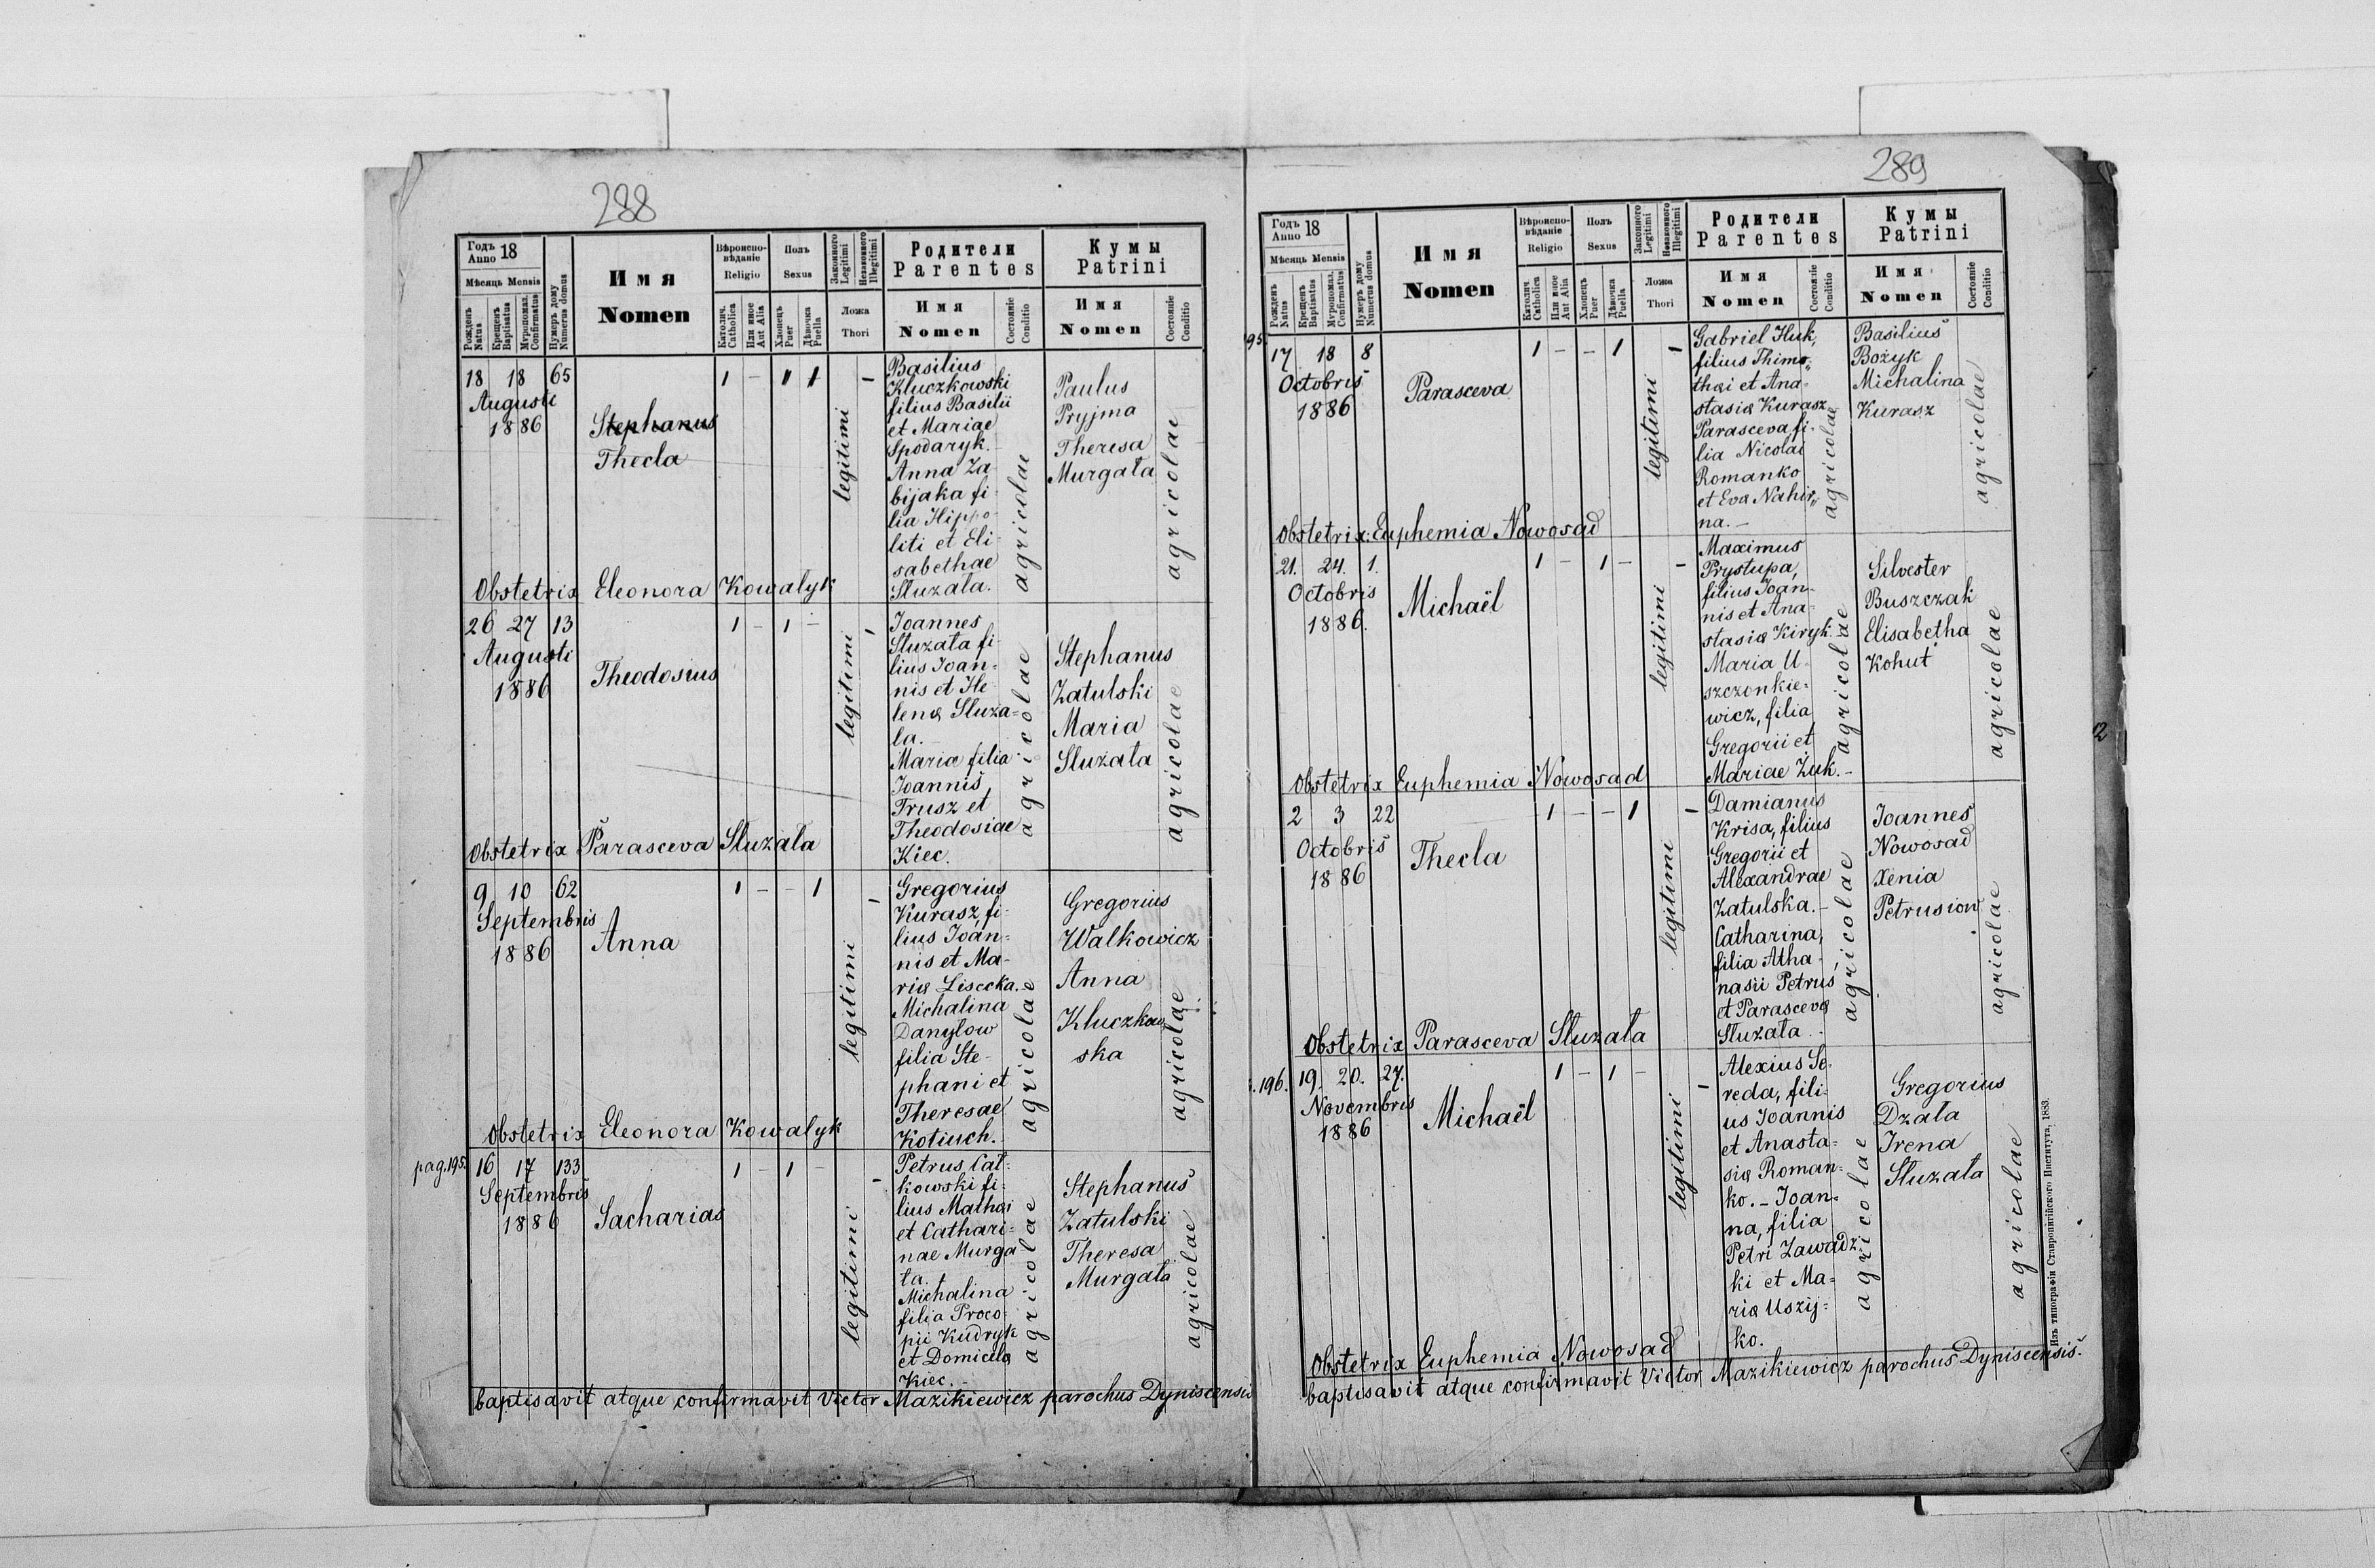 288
Годъ Anno 18
Мѣсяць Mensis
Рожденъ Natus
Крещенъ Baptisatus
Мѵропомаз. Confirmatus
Нумеръ дому Numerus domus
Имя Nomen
Вѣроисповѣданіе Religio
Католич. Catholica
Или иное Aut Alia
Полъ Sexus
Хлопецъ Puer
Дѣвочка Puella
Законного Legitimi
Незаконного Illegitimi
Ложа Thori
Родители Parentes
Имя Nomen
Состояніе Conditio
Кумы Patrini
Имя Nomen
Состояніе Conditio
18 18 65
Augusti
1886
Stephanus
Thecla
1 - 1 1 -
legitimi
Basilius
Kluczkowski
filius Basilii
et Mariae
Spodaryk.
Anna Za-
bijaka fi-
lia Hippo-
liti et Eli-
sabethae
Sluzala.
agricolae
Paulus
Pryjma
Theresa
Murgała
agricolae
Obstetrix Eleonora Kowalyk
26 27 13
Augusti
1886
Theodosius
1 - 1 -
legitimi
Joannes
Sluzała fi-
lius Joan-
nis et He-
lenæ Sluza=
la.
Maria filia
Joannis
Trusz et
Theodosiae
Kiec.
agricolae
Stephanus
Zatulski
Maria
Sluzała
agricolae
Obstetrix Parasceva Sluzała
9 10 62
Septembris
1886
Anna
1 - - 1 -
legitimi
Gregorius
Kurasz, fi-
lius Joan=
nis et Ma-
riæ Lisecka.
Michalina
Danyłow
filia Ste-
phani et
Theresae
Kotiuch.
agricolae
Gregorius
Walkowicz
Anna
Kluczkow
ska
agricolae
Obstetrix Eleonora Kowalyk
pag.195.
16 17 133
Septembris
1886
Sacharias
1 - 1 - -
legitimi
Petrus Cat-
kowski fi-
lius Mathæi
et Cathari-
nae Murga
ła.
Michalina
filia Proco-
pii Kudryk
et Domicelæ
Kiec.
agricolae
Stephanus
Zatulski
Theresa
Murgała
agricolae
baptisavit atque confirmavit Victor Mazikiewicz parochus Dyniscensis
289
Годъ Anno 18
Мѣсяць Mensis
Рожденъ Natus
Крещенъ Baptisatus
Мѵропомаз. Confirmatus
Нумеръ дому Numerus domus
Имя Nomen
Вѣроисповѣданіе Religio
Католич. Catholica
Или иное Aut Alia
Полъ Sexus
Хлопецъ Puer
Дѣвочка Puella
Законного Legitimi
Незаконного Illegitimi
Ложа Thori
Родители Parentes
Имя Nomen
Состояніе Conditio
Кумы Patrini
Имя Nomen
Состояніе Conditio
195
17 18 8
Octobris
1886
Parasceva
1 - - 1 -
legitimi
Gabriel Huk,
filius Thimo-
thæi et Ana-
stasiæ Kurasz
Parasceva fi-
lia Nicolai
Romanko
et Evæ Nahir-
na. -
agricolae
Basilius
Bożyk
Michalina
Kurasz
agricolae
Obstetrix: Euphemia Nowosad
21. 24. 1.
Octobris
1886.
Michaël
1 - 1 - -
legitimi
Maximus
Prystupa,
filius Joan-
nis et Ana-
stasiæ Kiryk.
Maria U-
szczonkie-
wicz, filia
Gregorii et
Mariae Zuk. -
agricolae
Silvester
Buszczak
Elisabetha
Kohut
agricolae
Obstetrix Euphemia Nowosad
2 3 22
Octobris
1886
Thecla
1 - - 1 -
legitimi
Damianus
Krisa, filius
Gregorii et
Alexandrae
Zatulska. -
Catharina,
filia Atha-
nasii Petrus
et Parascevæ
Sluzała.
agricolae
Joannes
Nowosad
Xenia
Petrusiow
agricolae
Obstetrix Parasceva Sluzała
196.
19. 20. 27.
Novembris
1886
Michaël
1 - 1 - -
legitimi
Alexius Se-
reda, fili-
us Joannis
et Anasta=
siæ Roman-
ko. - Joan-
na, filia
Petri Zawadz-
ki et Ma-
riæ Uszij-
ko.
agricolae
Gregorius
Dzała
Irena
Sluzała
agricolae
Obstetrix Euphemia Nowosad
baptisavit atque confirmavit Victor Mazikiewicz parochus Dyniscensis.
Изъ типографіи Ставропигійского Института, 1883.
2